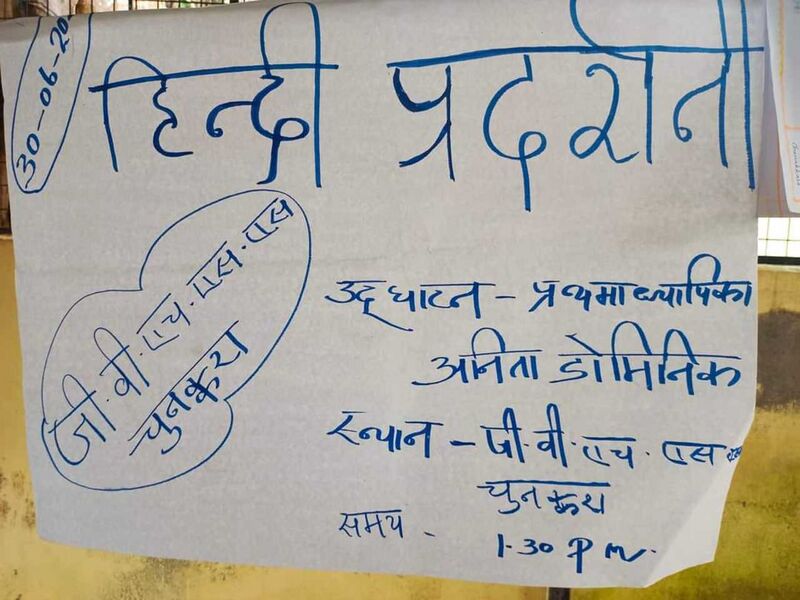 30-06-20
हिन्दी प्रदर्शनी
जी.वी.एच.एस.एस
चुनक्करा
उद्घाटन - प्रथमाध्यापिका
अनिता डोमिनिक
स्थान - जी.वी.एच.एस.एस
चुनक्करा
समय - 1.30 Pm.